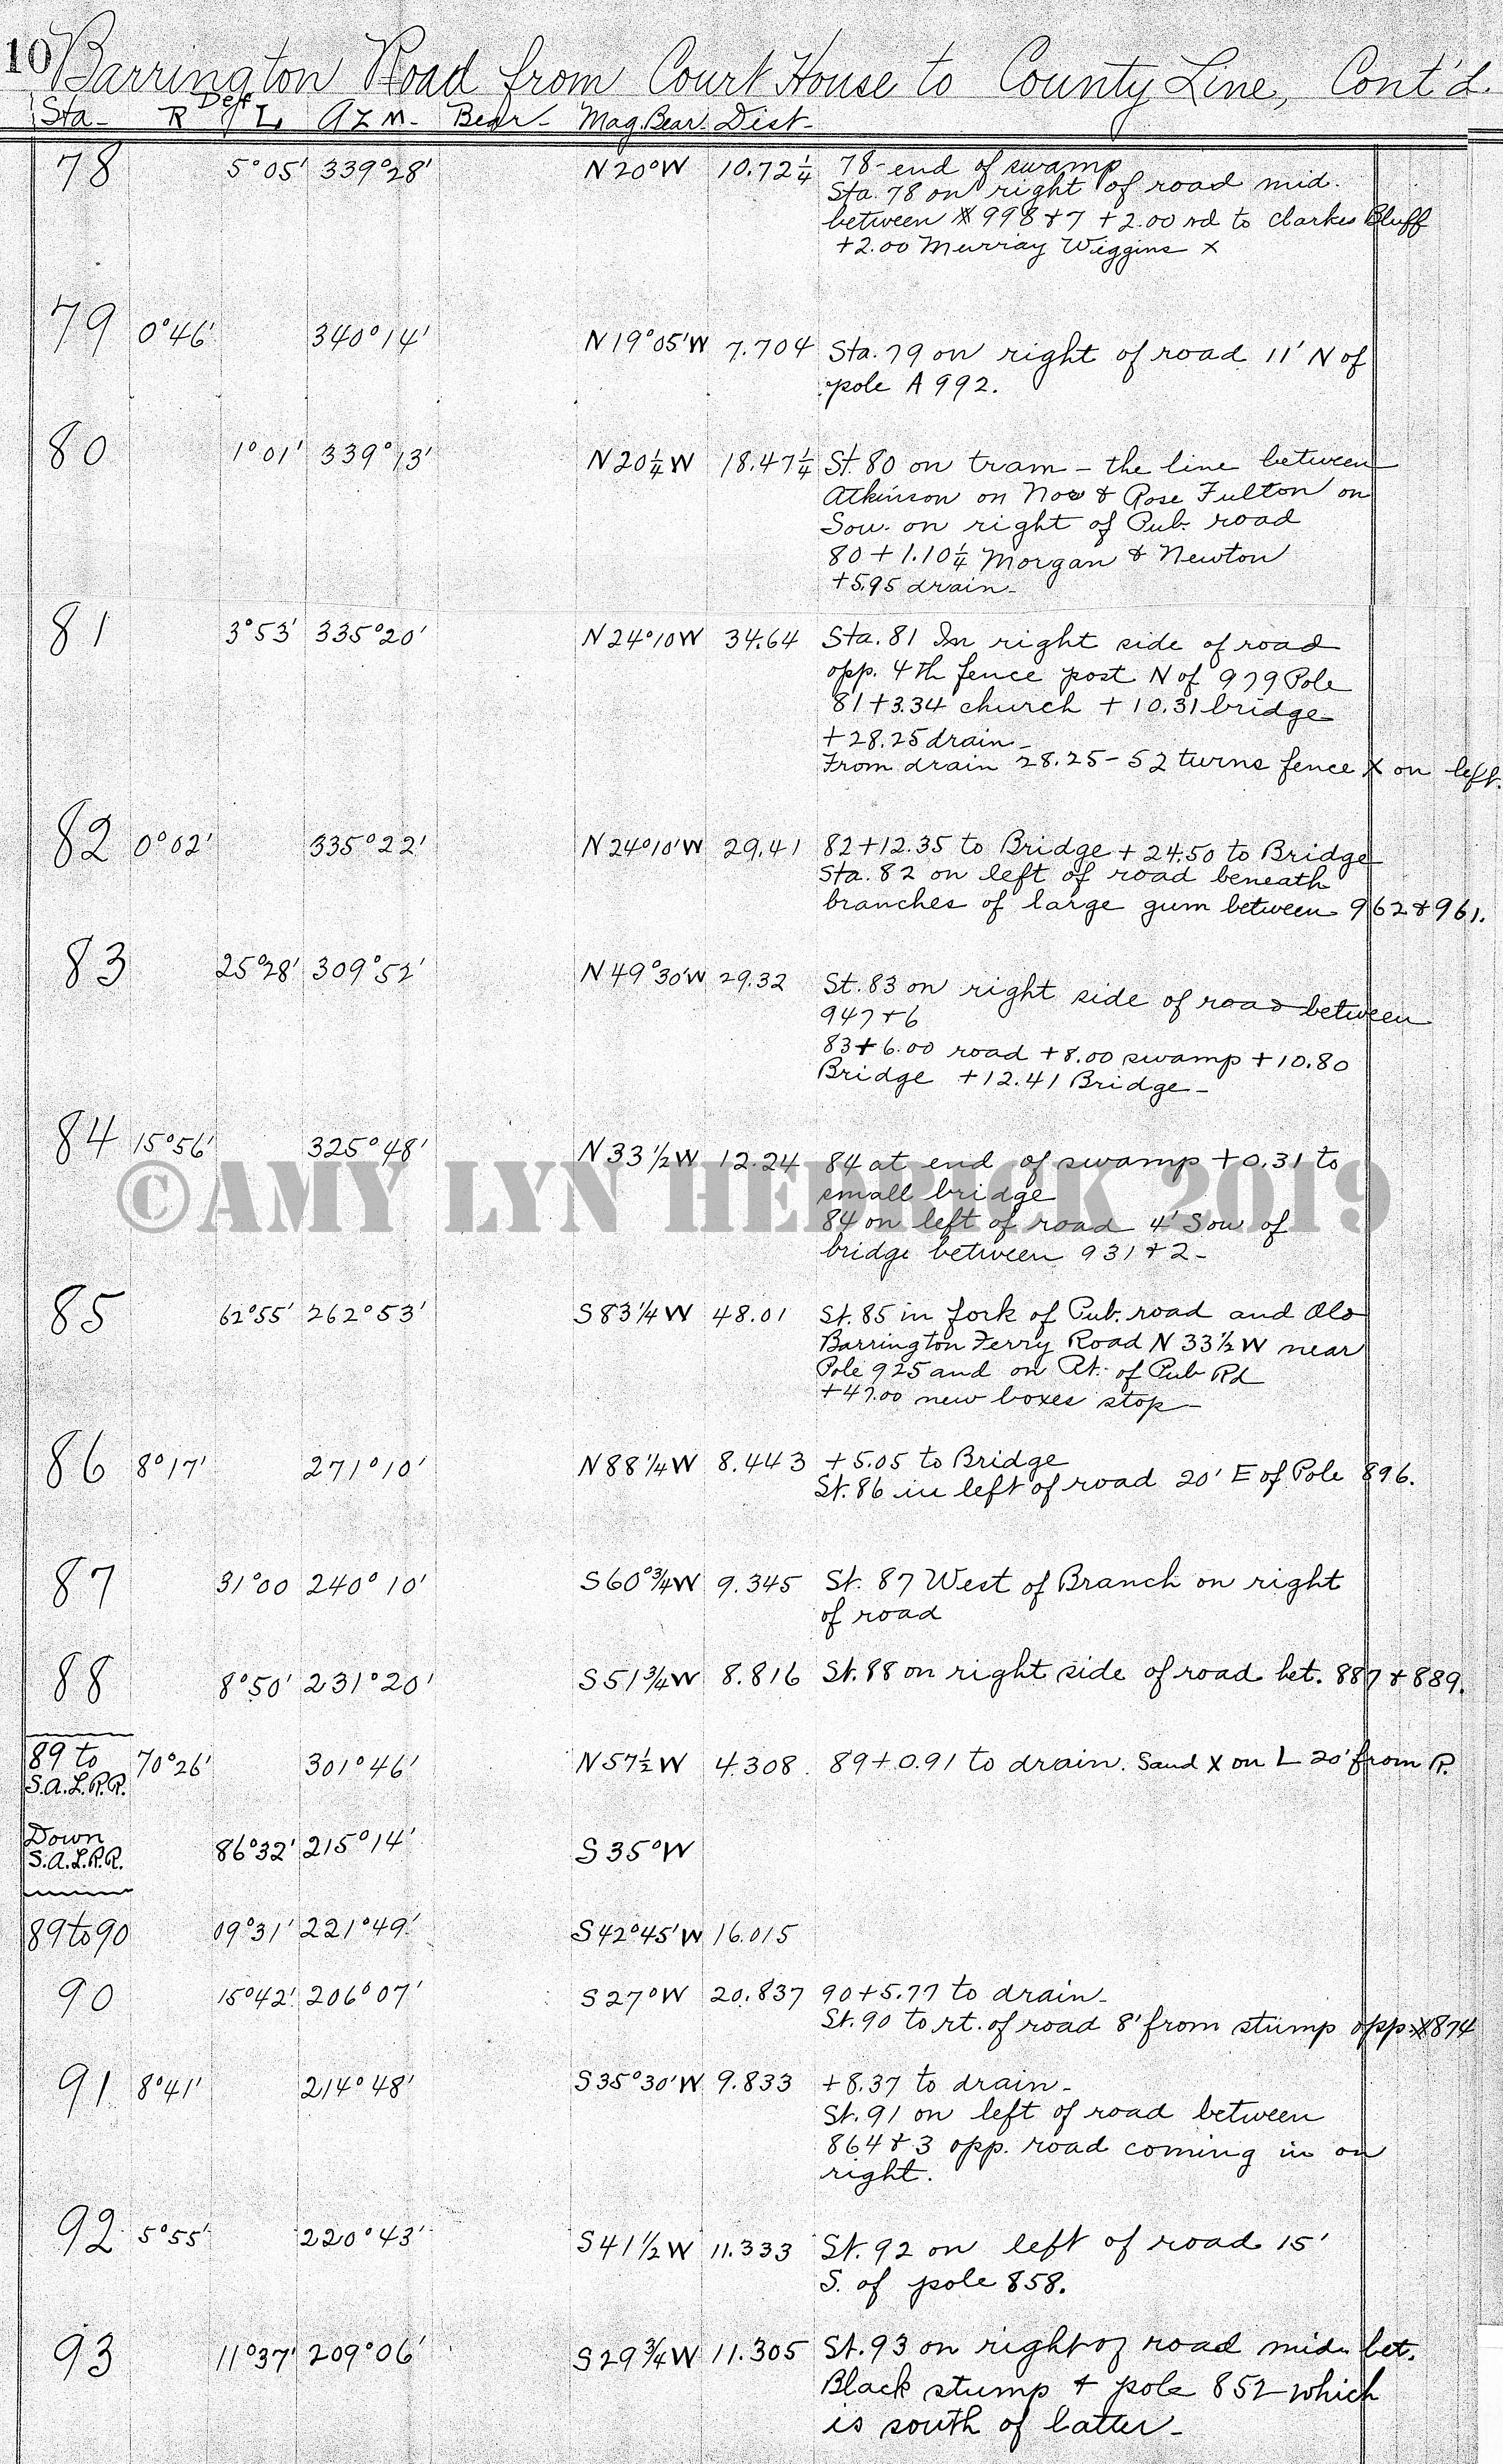 10 Barrington Road from Court House to County Line, Cont'd.
Sta- R Defl L AZM- Bear- Mag.Bear. Dist-
78 5°05' 339°28' N20°W 10.72¼ 78-end of swamp
Sta. 78 on right of road mid.
between X 998 & 7 +2.00 rd to Clarkes Bluff
+2.00 Murray Wiggins X
79 0°46' 340°14' N19°05'W 7.704 Sta. 79 on right of road 11' N of
pole A 992.
80 1°01' 339°13' N20¼W 18.47¼ St. 80 on tram - the line between
Atkinson on Nor & Rose Fulton on
Sou. on right of Pub. road
80+1.10¼ Morgan & Newton
+5.95 drain-
81 3°53' 335°20' N24°10W 34.64 Sta. 81 In right side of road
opp. 4th fence post N of 979 Pole
81+3.34 church + 10.31 bridge
+28.25 drain-
From drain 28.25-52 turns fence X on left.
82 0°02' 335°22' N24°10'W 29.41 82+12.35 to Bridge + 24.50 to Bridge
Sta. 82 on left of road beneath
branches of large gum between 962 & 961.
83 25°28' 309°52' N49°30'W 29.32 St. 83 on right side of road between
947 & 6
83+6.00 road +8.00 swamp +10.80
Bridge +12.41 Bridge-
84 15°56' 325°48' N33½W 12.24 84 at end of swamp +0.31 to
small bridge
©AMY LYN HEDRICK 2019
84 on left of road 4' Sou of
bridge between 931 & 2-
85 62°55' 262°53' S83¼W 48.01 St. 85 in fork of Pub. road and Old
Barrington Ferry Road N33½W near
Pole 925 and on Rt. of Pub Rd
+47.00 new boxes stop-
86 8°17' 271°10' N88¼W 8.443 +5.05 to Bridge
St. 86 in left of road 20' E of Pole 896.
87 31°00 240°10' S60°¾W 9.345 St. 87 West of Branch on right
of road
88 8°50' 231°20' S51¾W 8.816 St. 88 on right side of road bet. 887 & 889.
89 to 70°26' 301°46' N57½W 4.308 89+0.91 to drain. Sand X on L 20' from R.
S.A.L.R.R.
Down 86°32' 215°14' S35°W
S.A.L.R.R.
89 to 90 09°31' 221°49' S42°45'W 16.015
90 15°42' 206°07' S27°W 20.837 90+5.77 to drain-
St. 90 to rt. of road 8' from stump opp. X874
91 8°41' 214°48' S35°30'W 9.833 +8.37 to drain-
St. 91 on left of road between
864 & 3 opp. road coming in on
right.
92 5°55' 220°43' S41½W 11.333 St. 92 on left of road 15'
S. of pole 858.
93 11°37' 209°06' S29¾W 11.305 St. 93 on right of road mid. bet.
Black stump & pole 852 which
is south of latter-